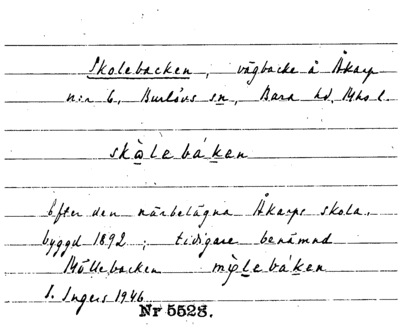 Skolebacken, vägbacke å Åkarp
n:r 6, Burlövs sn, Bara hd, Mho l.
skɷ̀lebáken
Efter den närbelägna Åkarps skola,
byggd 1892; tidigare benämnd
Möllebacken mø̀lebáken
I. Ingers 1946
Nr 5528.